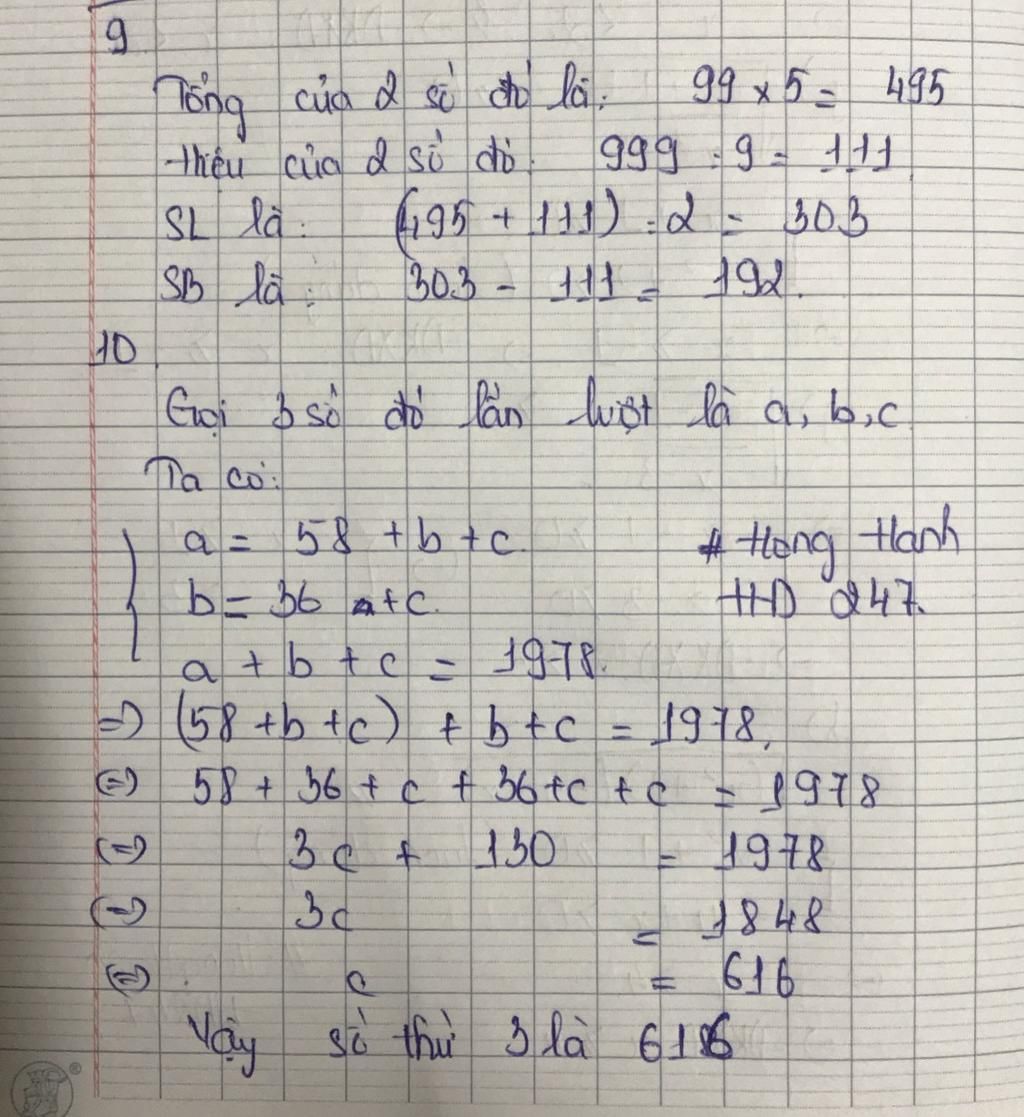 9
Tổng của 2 số đó là: 99 x 5 = 495
Hiệu của 2 số đó: 999 : 9 = 111
SL là: (495 + 111) : 2 = 303
SB là: 303 - 111 = 192.
10
Gọi 3 số đó lần lượt là a, b, c
Ta có:
a = 58 + b + c.
# Hong Hanh
b = 36 + c.
HD 247.
a + b + c = 1978.
=> (58 + b + c) + b + c = 1978,
(=) 58 + 36 + c + 36 + c + c = 1978
(=) 3c + 130 = 1978
(=) 3c = 1848
(=) c = 616
Vậy số thứ 3 là 616
®